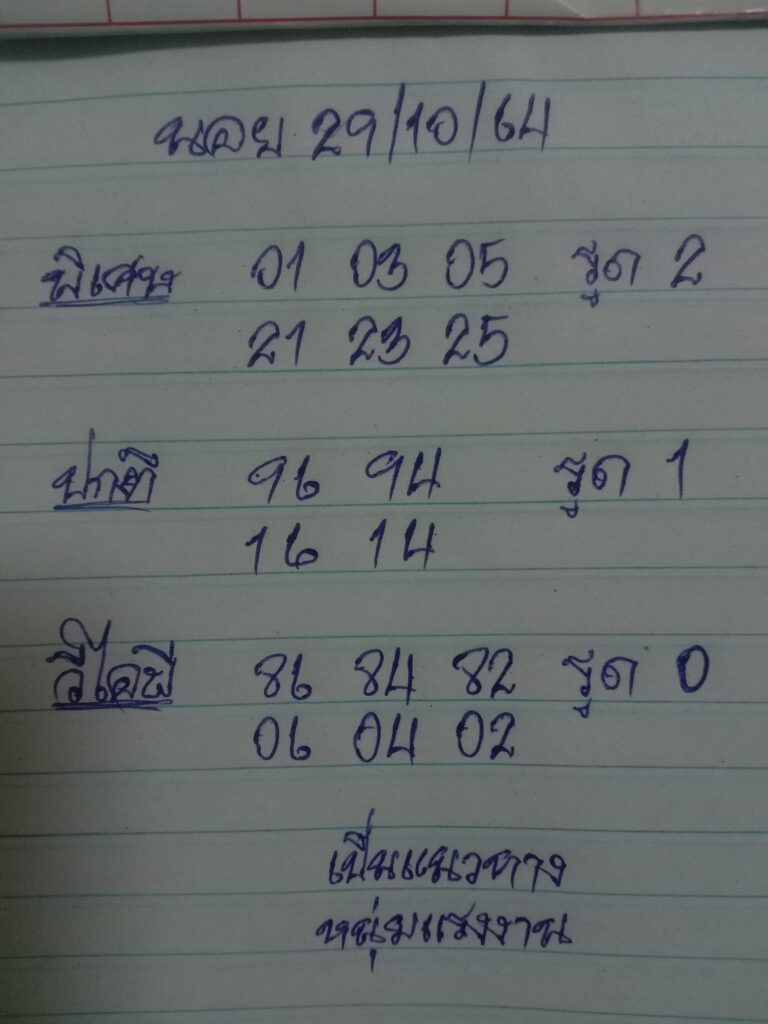 นอย 29/10/64
พิเศษ 01 03 05 รูด 2
21 23 25
ปกติ 96 94 รูด 1
16 14
วีไอพี 86 84 82 รูด 0
06 04 02
เป็นแนวทาง
หนุ่มแรงงาน